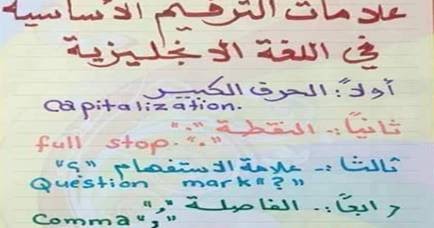 علامات الترقيم الأساسية
في اللغة الانجليزية
أولاً: الحرف الكبير
Capitalization.
ثانياً:- النقطة "."
full stop. "."
ثالثا:- علامة الاستفهام "؟"
Question mark "?"
رابعًا:- الفاصلة ","
Comma ","